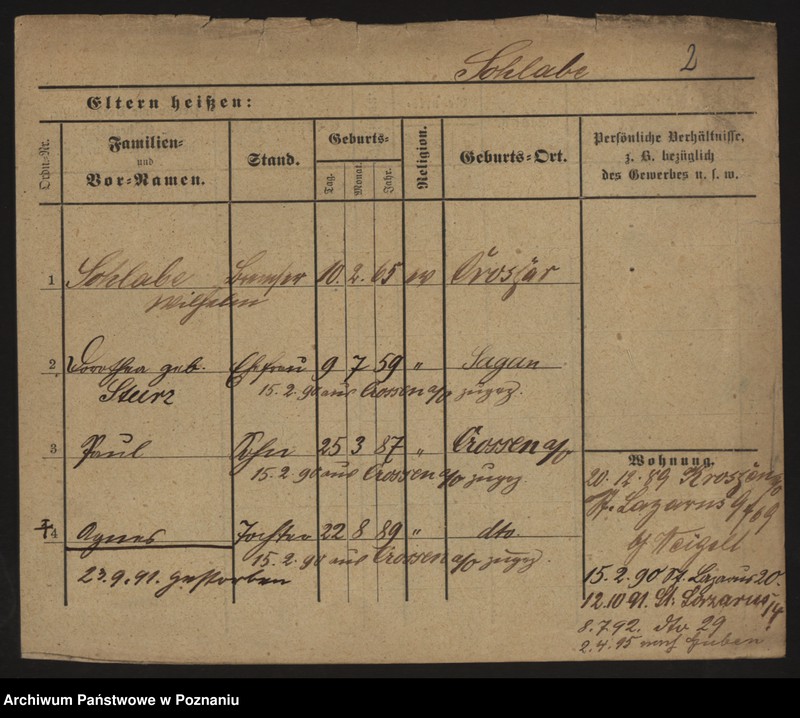 Sohlabe 2
Eltern heißen:
Ordn-Nr. Familien- und Vor-Namen. Stand. Geburts- Tag. Monat. Jahr. Religion. Geburts-Ort. Persönliche Verhältnisse, z. B. bezüglich des Gewerbes u. s. w.
1 Sohlabe 10. 2. 65 ev
Wilhelm
2 Dorothea geb. Ehefrau 9 7 59 " Sagan
Sturz 15. 2. 90 aus Crossen a/o zugez.
3 Paul Sohn 25 3 87 " Crossen a/o
15. 2. 90 aus Crossen a/o zugez.
4 Agnes Tochter 22 8 89 " dto.
15. 2. 90 aus Crossen a/o zugez.
23. 9. 91. gestorben
Wohnung.
20. 12. 89
St. Lazarus
b/ Weigelt
15. 2. 90 St. Lazarus 20.
12. 10 91. St. Lazarus 14
8. 7. 92. dto 29
2. 4. 95 nach Guben
Archiwum Państwowe w Poznaniu